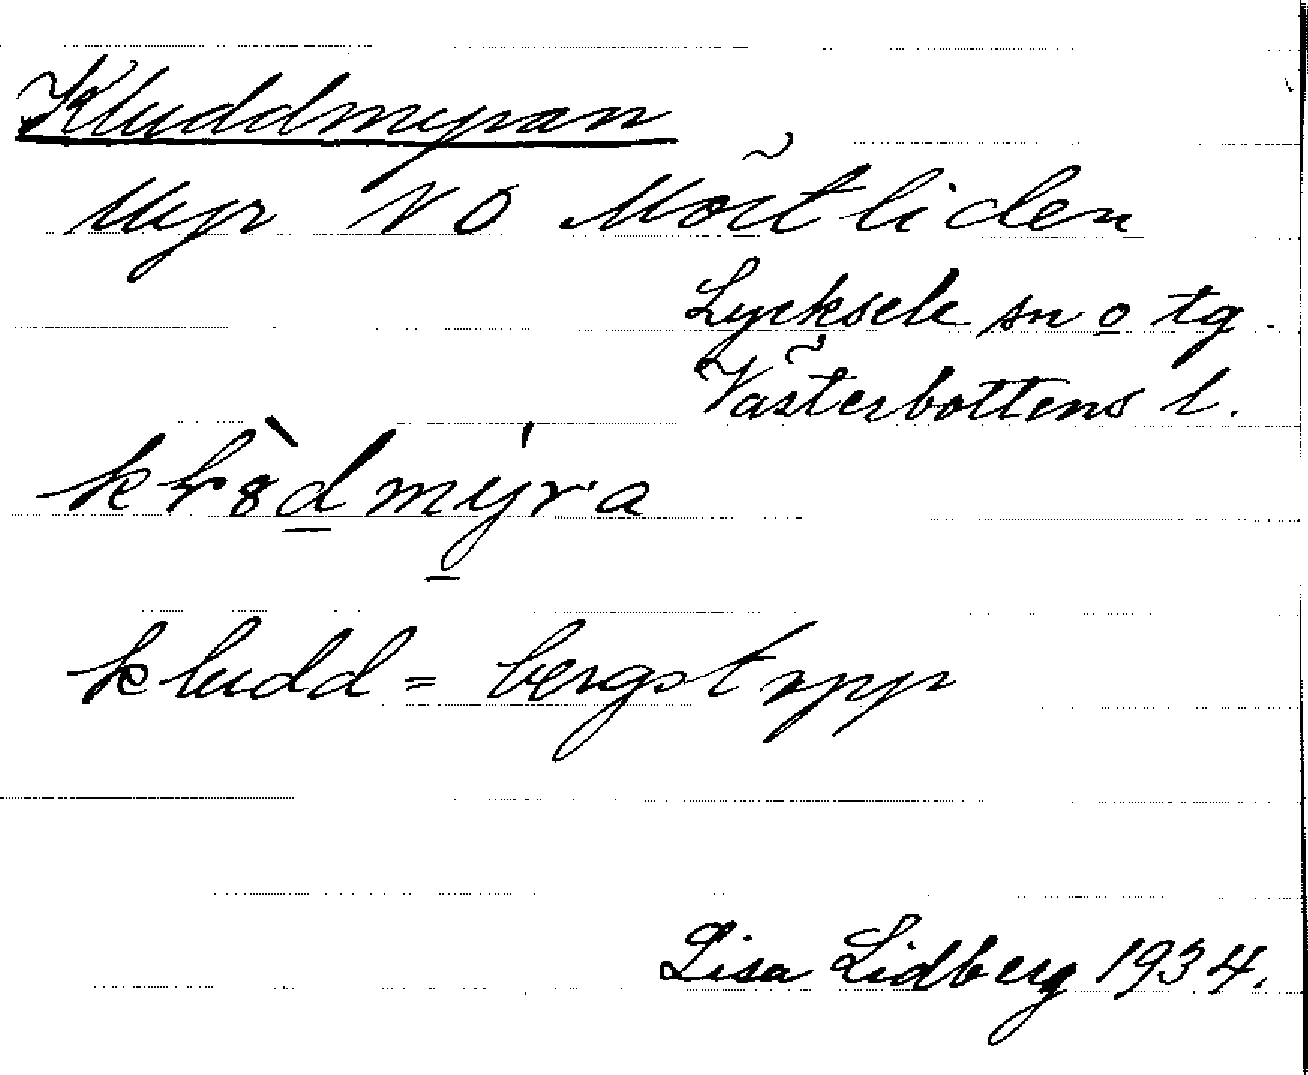 Kluddmyran
Myr NO Mörtliden
Lycksele sn o tg
Västerbottens l.
kludd = bergstopp
Lisa Lidberg 1934.